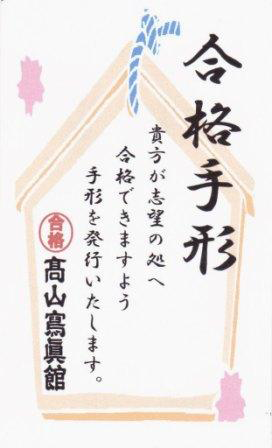 合格手形
貴方が志望の処へ
合格できますよう
手形を発行いたします。
合格
髙山寫眞館